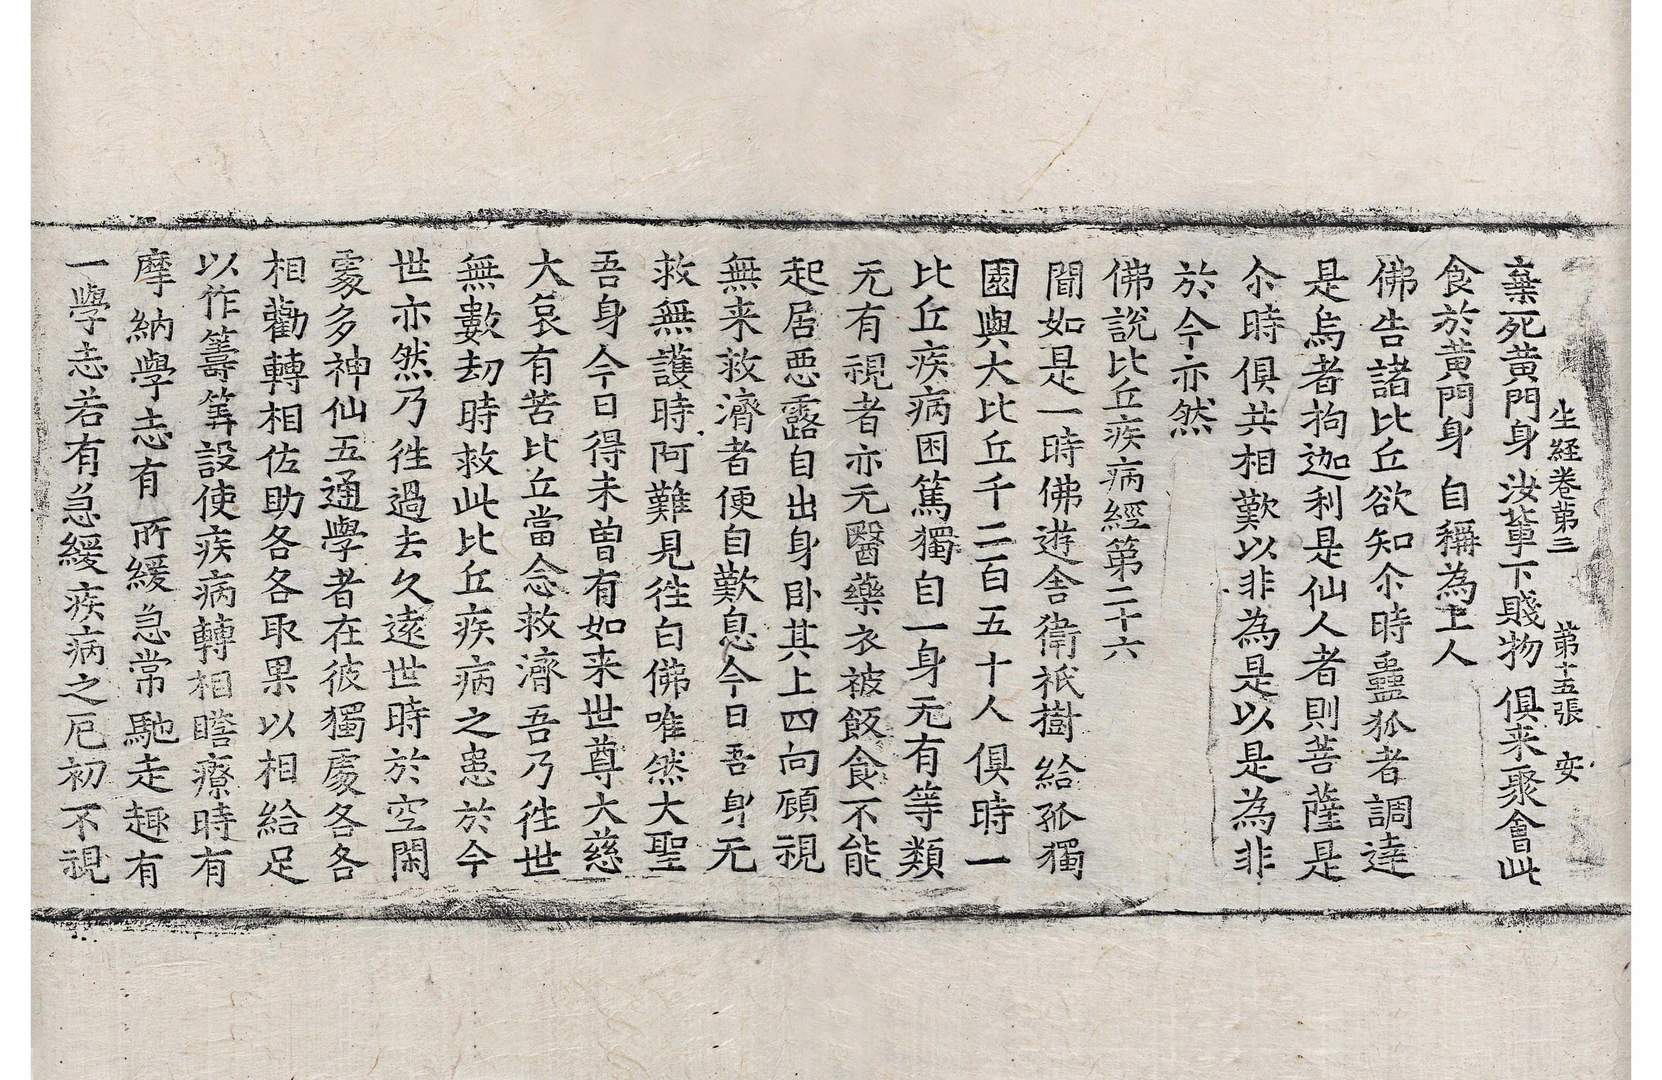 生經卷第三　第十五張　安
棄死黃門身　汝軰下賤物　俱来聚會此
食於黃門身　自稱為上人
佛告諸比丘欲知尒時蠱狐者調達
是烏者拘迦利是仙人者則菩薩是
尒時俱共相歎以非為是以是為非
於今亦然
佛說比丘疾病經第二十六
聞如是一時佛遊舍衛祇樹給孤獨
園與大比丘千二百五十人俱時一
比丘疾病困篤獨自一身无有等類
无有視者亦无醫藥衣被飯食不能
起居惡露自出身卧其上四向顧視
無来救濟者便自歎息今日吾身无
救無護時阿難見徃白佛唯然大聖
吾身今日得未曾有如来世尊大慈
大哀有苦比丘當念救濟吾乃徃世
無數劫時救此比丘疾病之患於今
世亦然乃徃過去久遠世時於空閑
處多神仙五通學者在彼獨處各各
相勸轉相佐助各各取果以相給足
以作籌筭設使疾病轉相瞻療時有
摩納學志有所緩急常馳走趣有
一學志若有急緩疾病之厄初不視